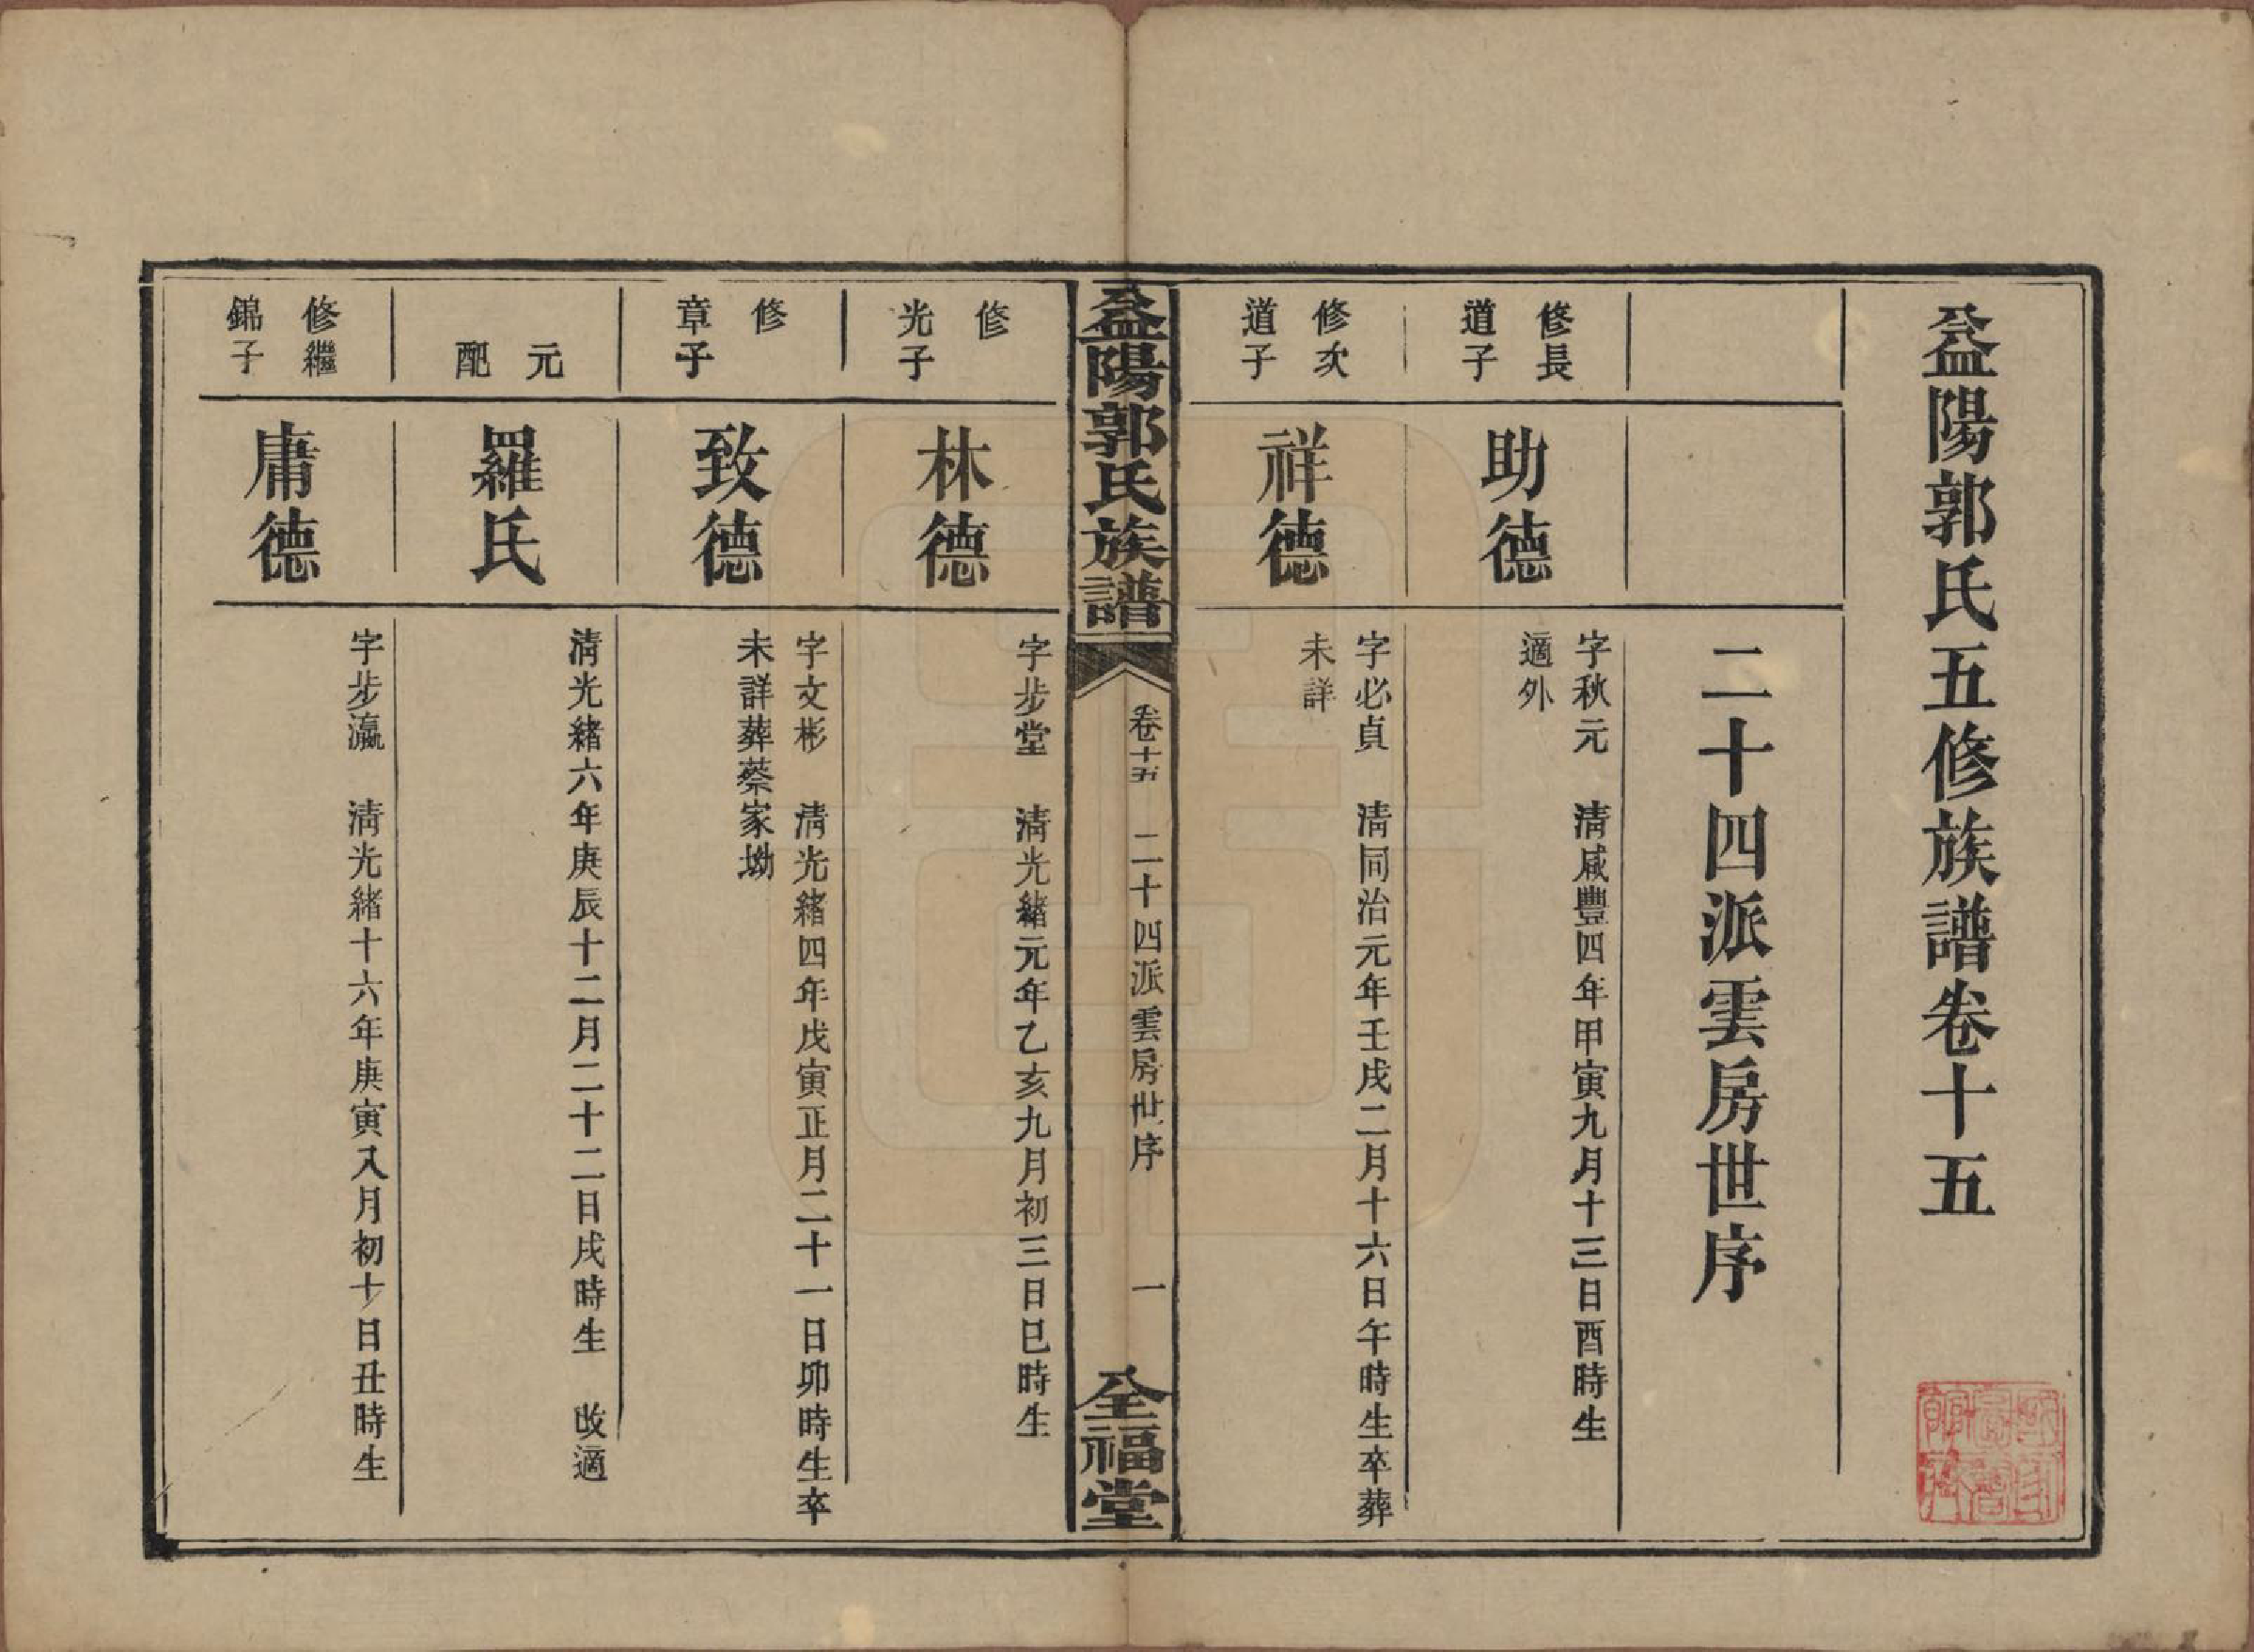 益陽郭氏五修族譜卷十五
二十四派雲房世序
修長
道子
助德
字秋元　清咸豐四年甲寅九月十三日酉時生
適外
修次
道子
祥德
字必貞　清同治元年壬戌二月十六日午時生卒葬
未詳
益陽郭氏族譜
卷十五　二十四派雲房世序　一
全福堂
修
光子
林德
字步堂　清光緒元年乙亥九月初三日巳時生
修
章子
致德
字文彬　清光緒四年戊寅正月二十一日卯時生卒
未詳葬蔡家坳
元
配
羅氏
清光緒六年庚辰十二月二十二日戌時生　改適
修繼
錦子
庸德
字步瀛　清光緒十六年庚寅八月初十日丑時生